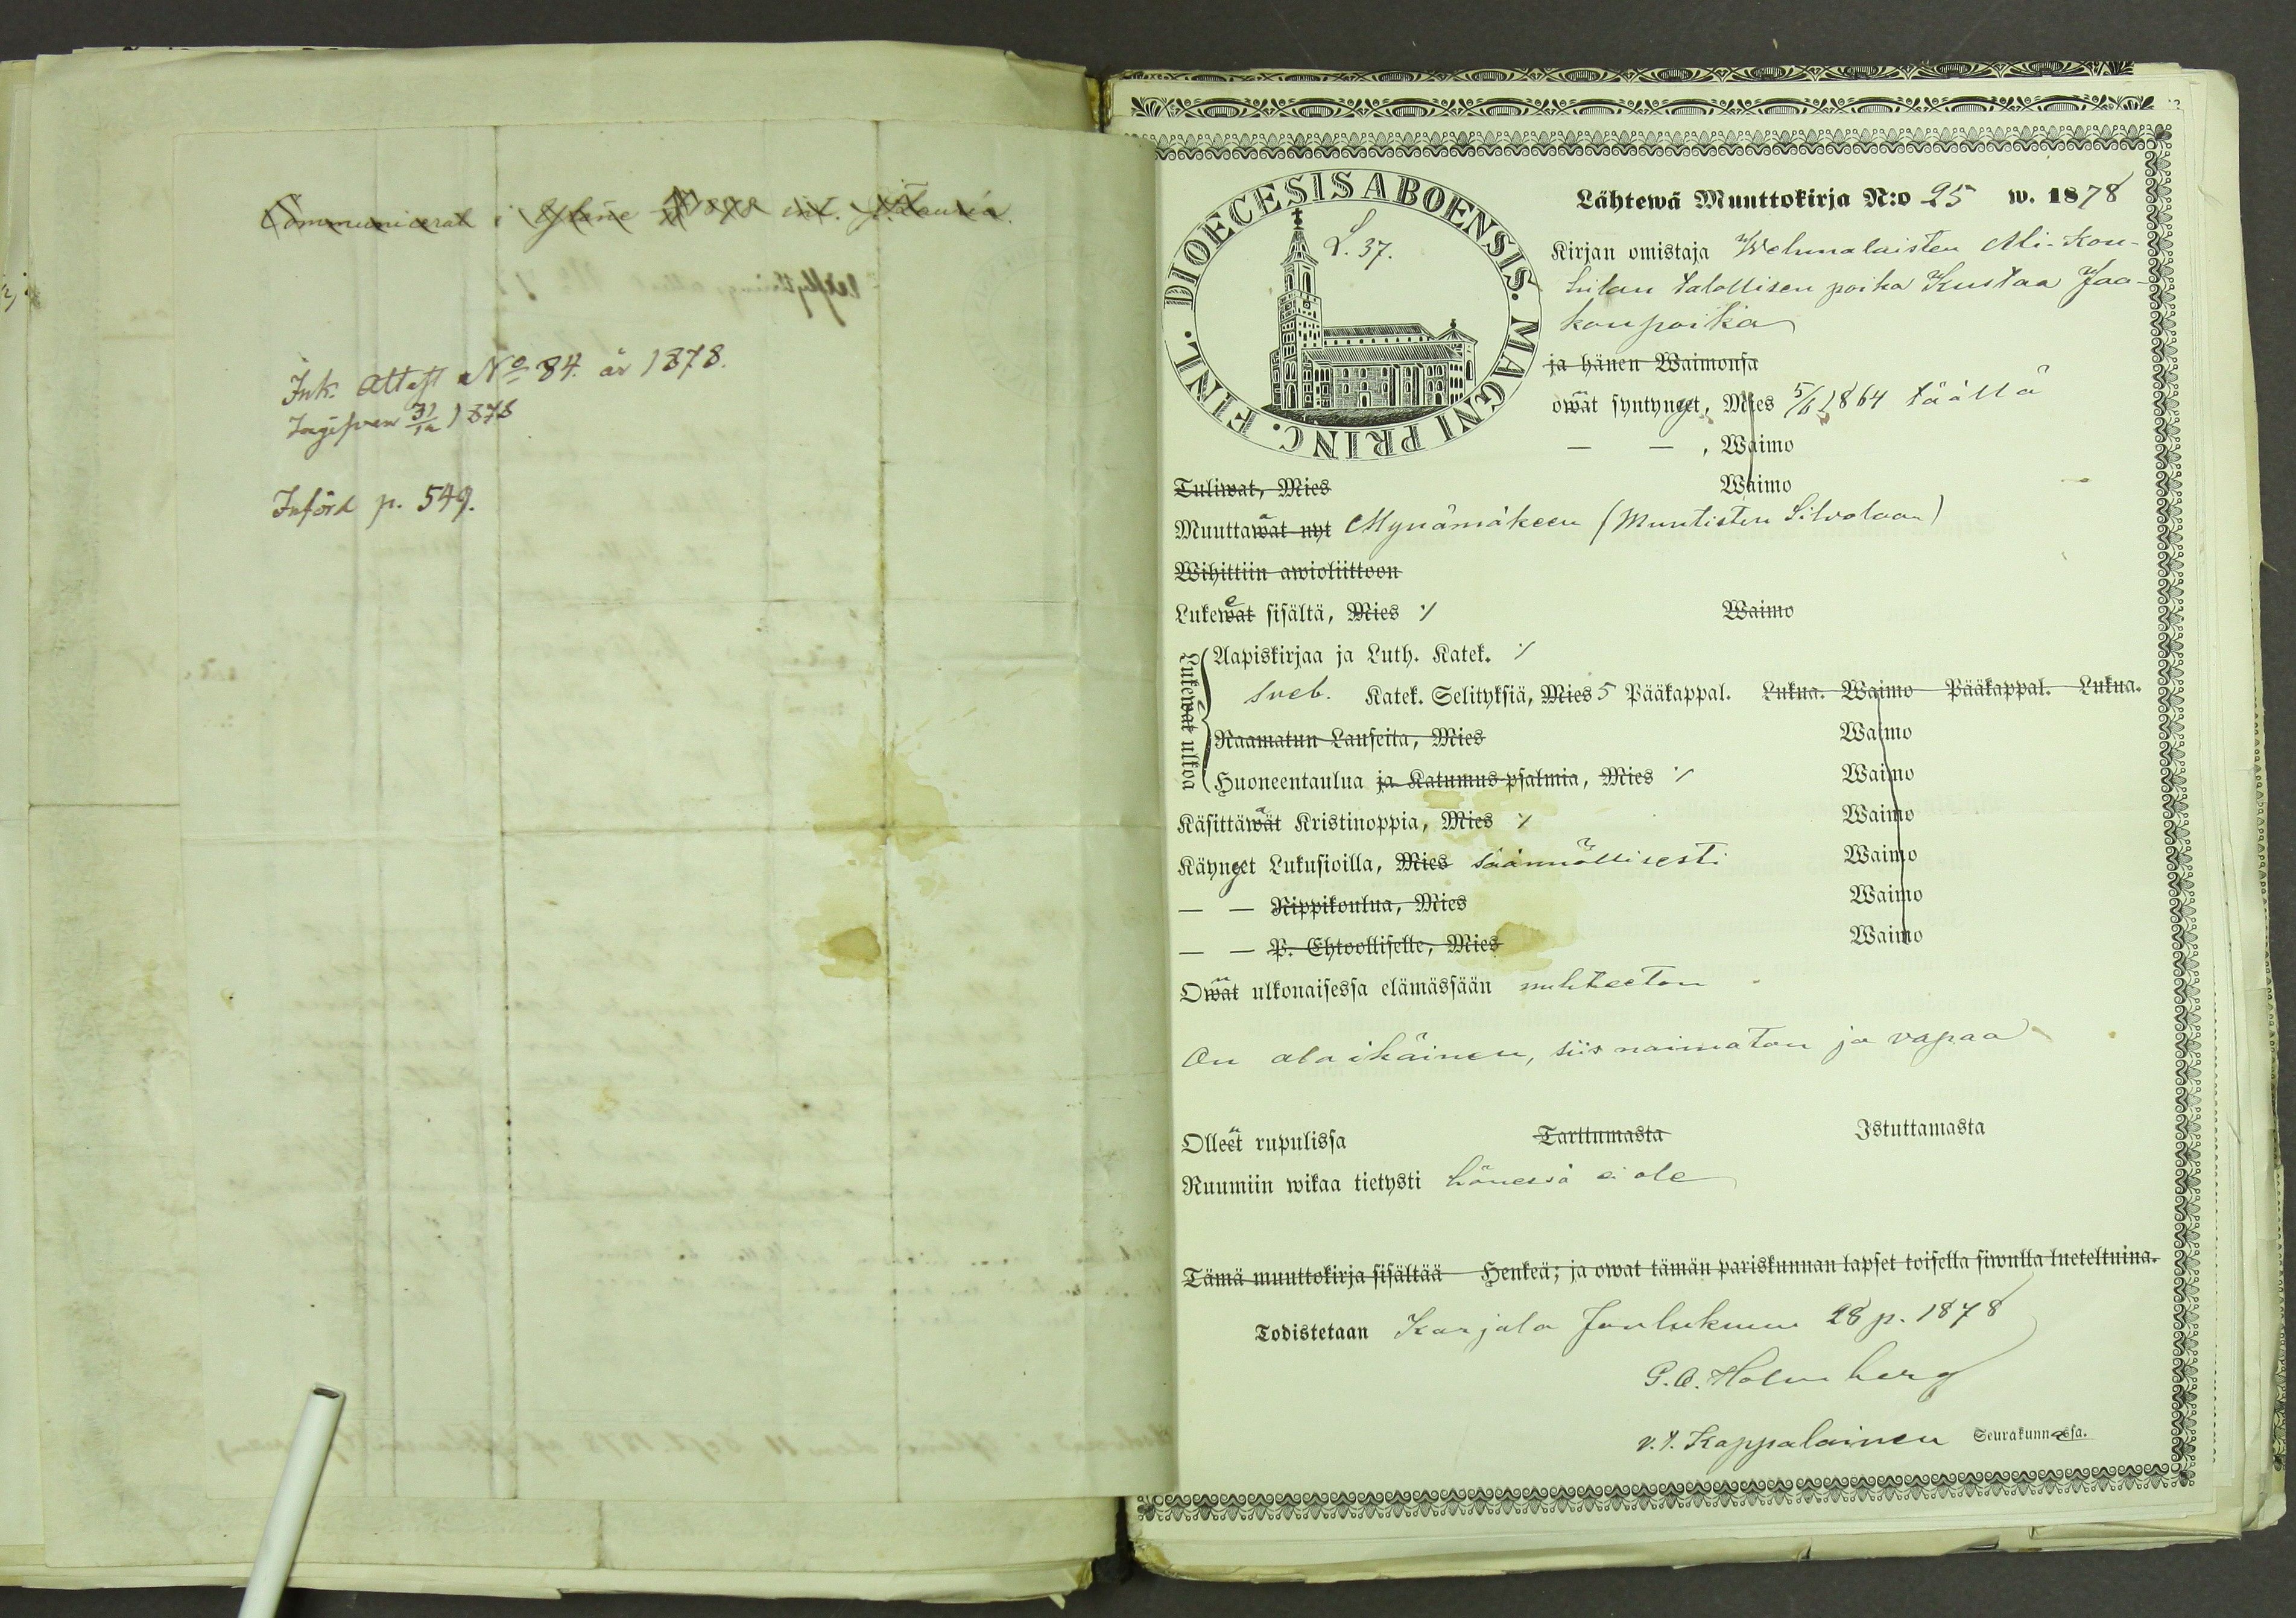 Communicerat i Yläne
Ink. Attest No 84. år 1878.
Ingifven 31/12 1878
Införd p. 549.
DIOECESIS ABOENSIS. MAGNI PRINC. FINL.
L. 37.
Lähtewä Muuttokirja N:o 25 w. 1878
Kirjan omistaja Wehmalaisten Ali-Kou-
hilan talollisen poika Kustaa Jaa-
konpoika
ja hänen Waimonsa
owat syntynyet, Mies 5/6 1864 täällä
— — , Waimo
Tuliwat, Mies Waimo
Muuttawat nyt Mynämäkeen (Muntisten Silvolaan)
Wihittiin awioliittoon
Lukewat sisältä, Mies ⁒ Waimo
Lukewat ulkoa
Aapiskirjaa ja Luth. Katek. ⁒
Sveb. Katek. Selityksiä, Mies 5 Pääkappal. Lukua. Waimo Pääkappal. Lukua.
Raamatun Lauseita, Mies Waimo
Huoneentaulua ja Katumus-psalmia, Mies ⁒ Waimo
Käsittäwät Kristinoppia, Mies ⁒ Waimo
Käynyet Lukusioilla, Mies säännöllisesti Waimo
— — Rippikoulua, Mies Waimo
— — P. Ehtoolliselle, Mies Waimo
Owat ulkonaisessa elämässään nuhteeton
On alaikäinen, siis naimaton ja vapaa
Olleet rupulissa Tarttumasta Istuttamasta
Ruumiin wikaa tietysti hänessä ei ole
Tämä muuttokirja sisältää Henkeä; ja owat tämän pariskunnan lapset toisella siwulla lueteltuina.
Todistetaan Karjala Joulukuun 28 p. 1878
G. A. Holmberg
v. t. Kappalainen Seurakunnassa.